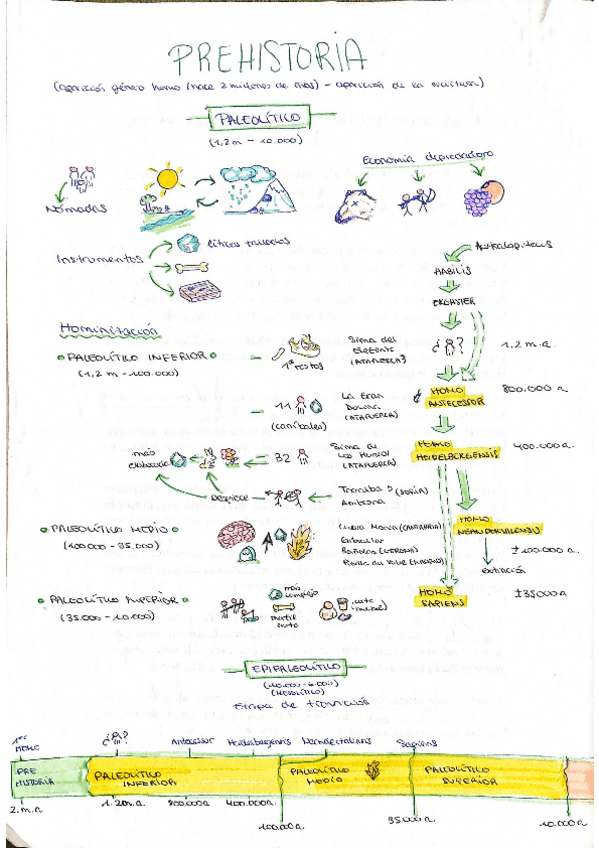 PREHISTORIA
(aparición género homo (hace 2 millones de años) - aparición de la escritura)
PALEOLÍTICO
(1,2m - 10.000)
Economía depredadora
Nómadas
Instrumentos
líticos tallados
Australopitecus
HABILIS
ERGASTER
¿?
1,2 m.a.
Hominización
PALEOLÍTICO INFERIOR
(1,2 m - 100.000)
1º restos
Sima del
elefante
(ATAPUERCA)
HOMO
ANTECESSOR
800.000 a.
11
(caníbales)
La Gran
Dolina
(ATAPUERCA)
más
elaborado
32
Sima de
los Huesos
(ATAPUERCA)
HOMO
HEIDELBERGENSIS
400.000a.
Despiece
Torralba y (SORIA)
Ambrona
PALEOLÍTICO MEDIO
(100.000 - 35.000)
Cova Negra
Bañolas (GERONA)
HOMO
NEANDERTHALENSIS
±100.000 a.
extinción
PALEOLÍTICO SUPERIOR
(35.000 - 10.000)
más
complejo
marfil
(arte
mueble)
HOMO
SAPIENS
±35000a
EPIPALEOLÍTICO
(10.000 - 6.000)
(MESOLÍTICO)
Etapa de transición
1er
HOMO
¿?
Antecessor
Heidelbergensis
Neandertalensis
Sapiens
PRE
HISTORIA
PALEOLÍTICO
INFERIOR
PALEOLÍTICO
MEDIO
PALEOLÍTICO
SUPERIOR
2.m.a
1.2m.a.
800.000a
400.000a.
100.000a.
35000a.
10.000a